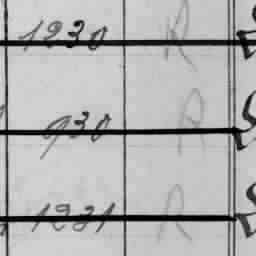 1230 R
930 R
1231 R